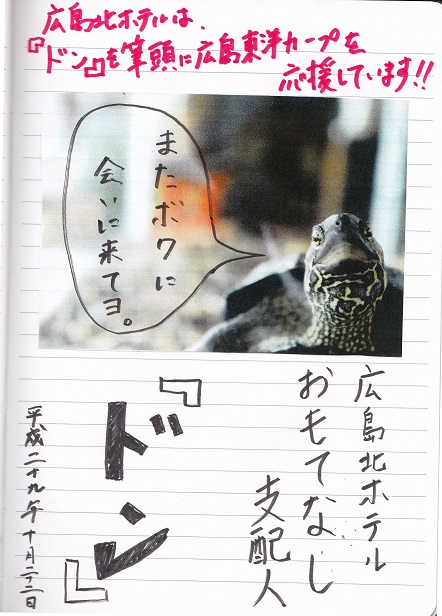 広島北ホテルは、
『ドン』を筆頭に広島東洋カープを
応援しています!!
またボクに
会いに来てヨ。
広島北ホテル
おもてなし
支配人
『ドン』
平成二十九年十月二十二日